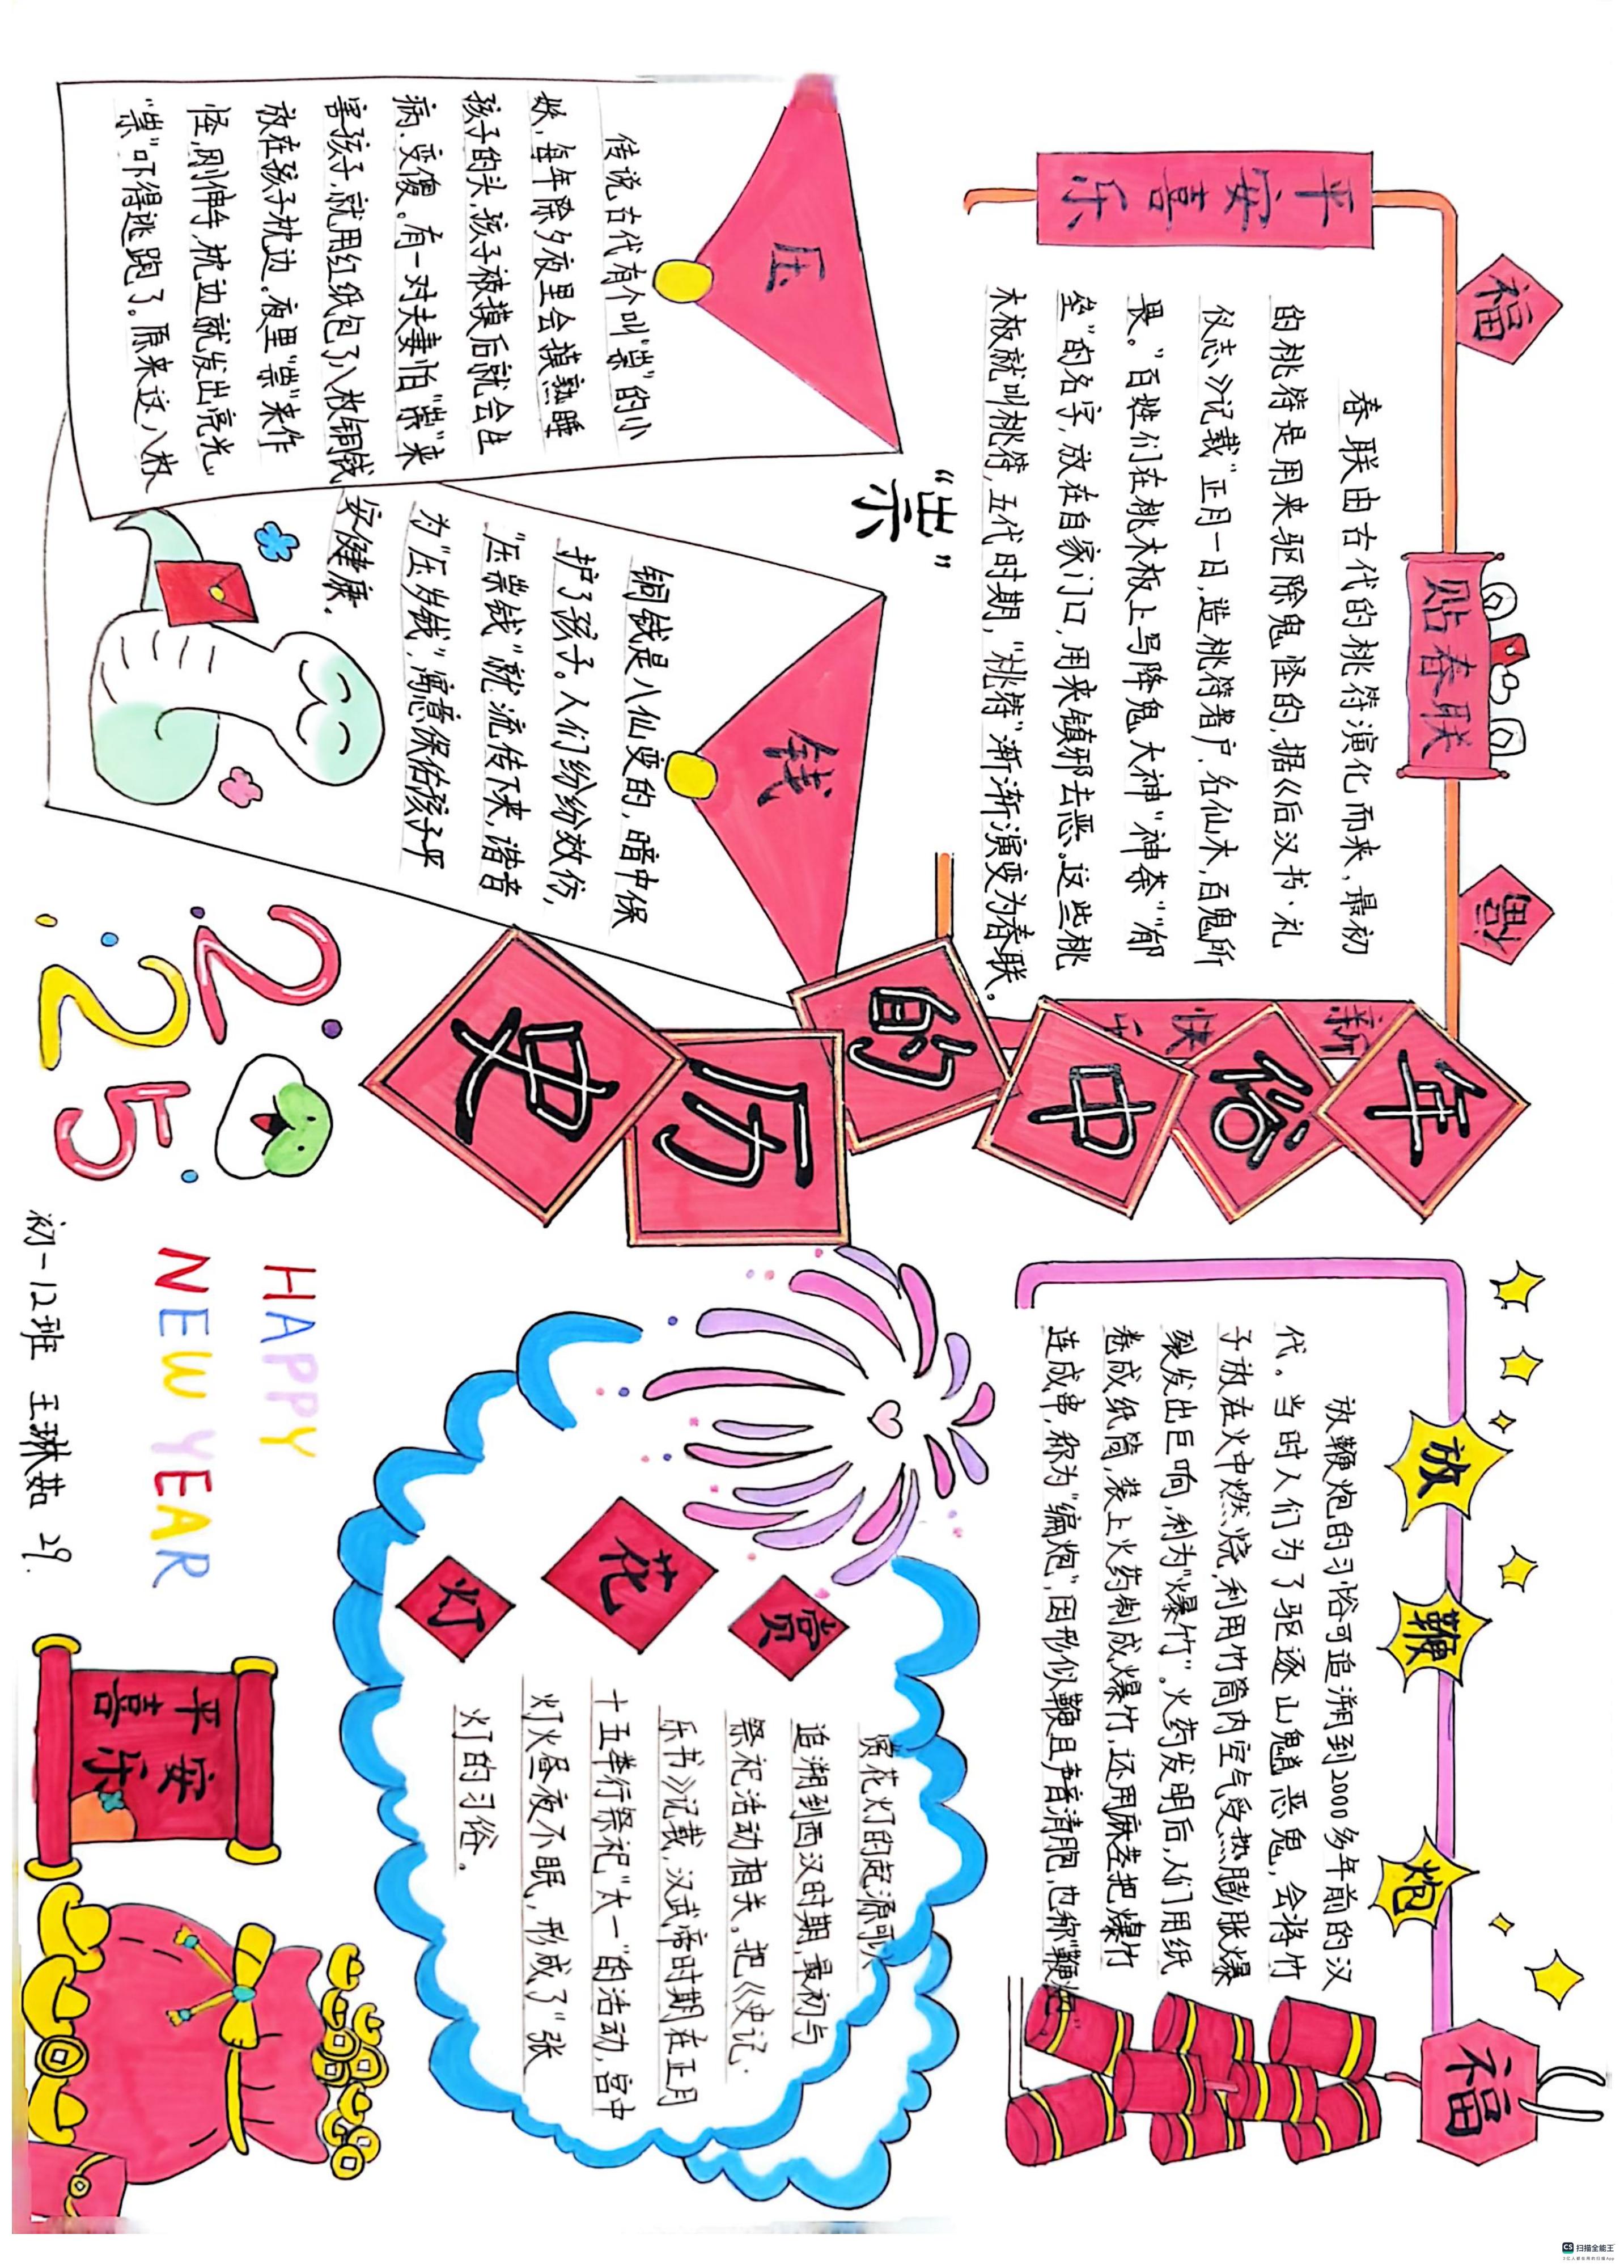 年俗中的历史
福
贴春联
福
平安喜乐
新
快
春联由古代的桃符演化而来,最初
的桃符是用来驱除鬼怪的,据《后汉书·礼
仪志》记载"正月一日,造桃符著户,名仙木,百鬼所
畏。"百姓们在桃木板上写降鬼大神"神荼""郁
垒"的名字,放在自家门口,用来镇邪去恶。这些桃
木板就叫桃符,五代时期,"桃符"渐渐演变为春联。
放鞭炮
福
放鞭炮的习俗可追溯到2000多年前的汉
代。当时人们为了驱逐山魈恶鬼,会将竹
子放在火中燃烧,利用竹筒内空气受热膨胀爆
裂发出巨响,利为"爆竹"。火药发明后,人们用纸
卷成纸筒,装上火药制成爆竹,还用麻茎把爆竹
连成串,称为"编炮",因形似鞭且声音清脆,也称"鞭炮"
压
"祟"
钱
传说古代有个叫"祟"的小
妖,每年除夕夜里会摸熟睡
孩子的头,孩子被摸后就会生
病、变傻。有一对夫妻怕"祟"来
害孩子,就用红纸包了八枚铜钱
放在孩子枕边。夜里"祟"来作
怪,刚伸手,枕边就发出亮光,
"祟"吓得逃跑了。原来这八枚
铜钱是八仙变的,暗中保
护了孩子。人们纷纷效仿,
"压祟钱"就流传下来,谐音
为"压岁钱",寓意保佑孩子平
安健康。
赏花灯
赏花灯的起源可以
追溯到西汉时期,最初与
祭祀活动相关。把《史记·
乐书》记载,汉武帝时期在正月
十五举行祭祀"太一"的活动,宫中
灯火昼夜不眠,形成了"张
灯的习俗。
2025
HAPPY
NEW YEAR
平安
喜乐
初一12班 王琳茹 29.
CS 扫描全能王